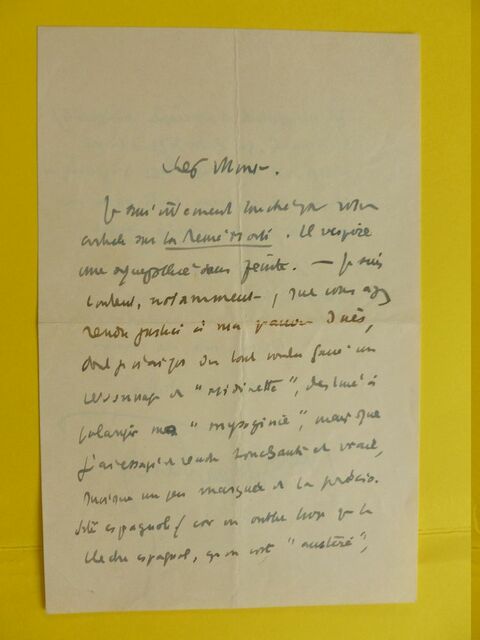 Cher Mons-.
Je suis vivement touché par votre
article sur la Reine Morte. Il respire
une sympathie sans feinte. — Je suis
content, notamment, que vous ayez
rendu justice à ma pauvre Inès,
dont je n'ai pas du tout voulu faire un
personnage de "midinette", destiné à
"misogynie", mais que
j'ai essayé de rendre touchante et vraie,
quoique un peu marquée de la précio-
sité espagnole (car on oublie trop que le
théâtre espagnol, qu'on croit "austère",